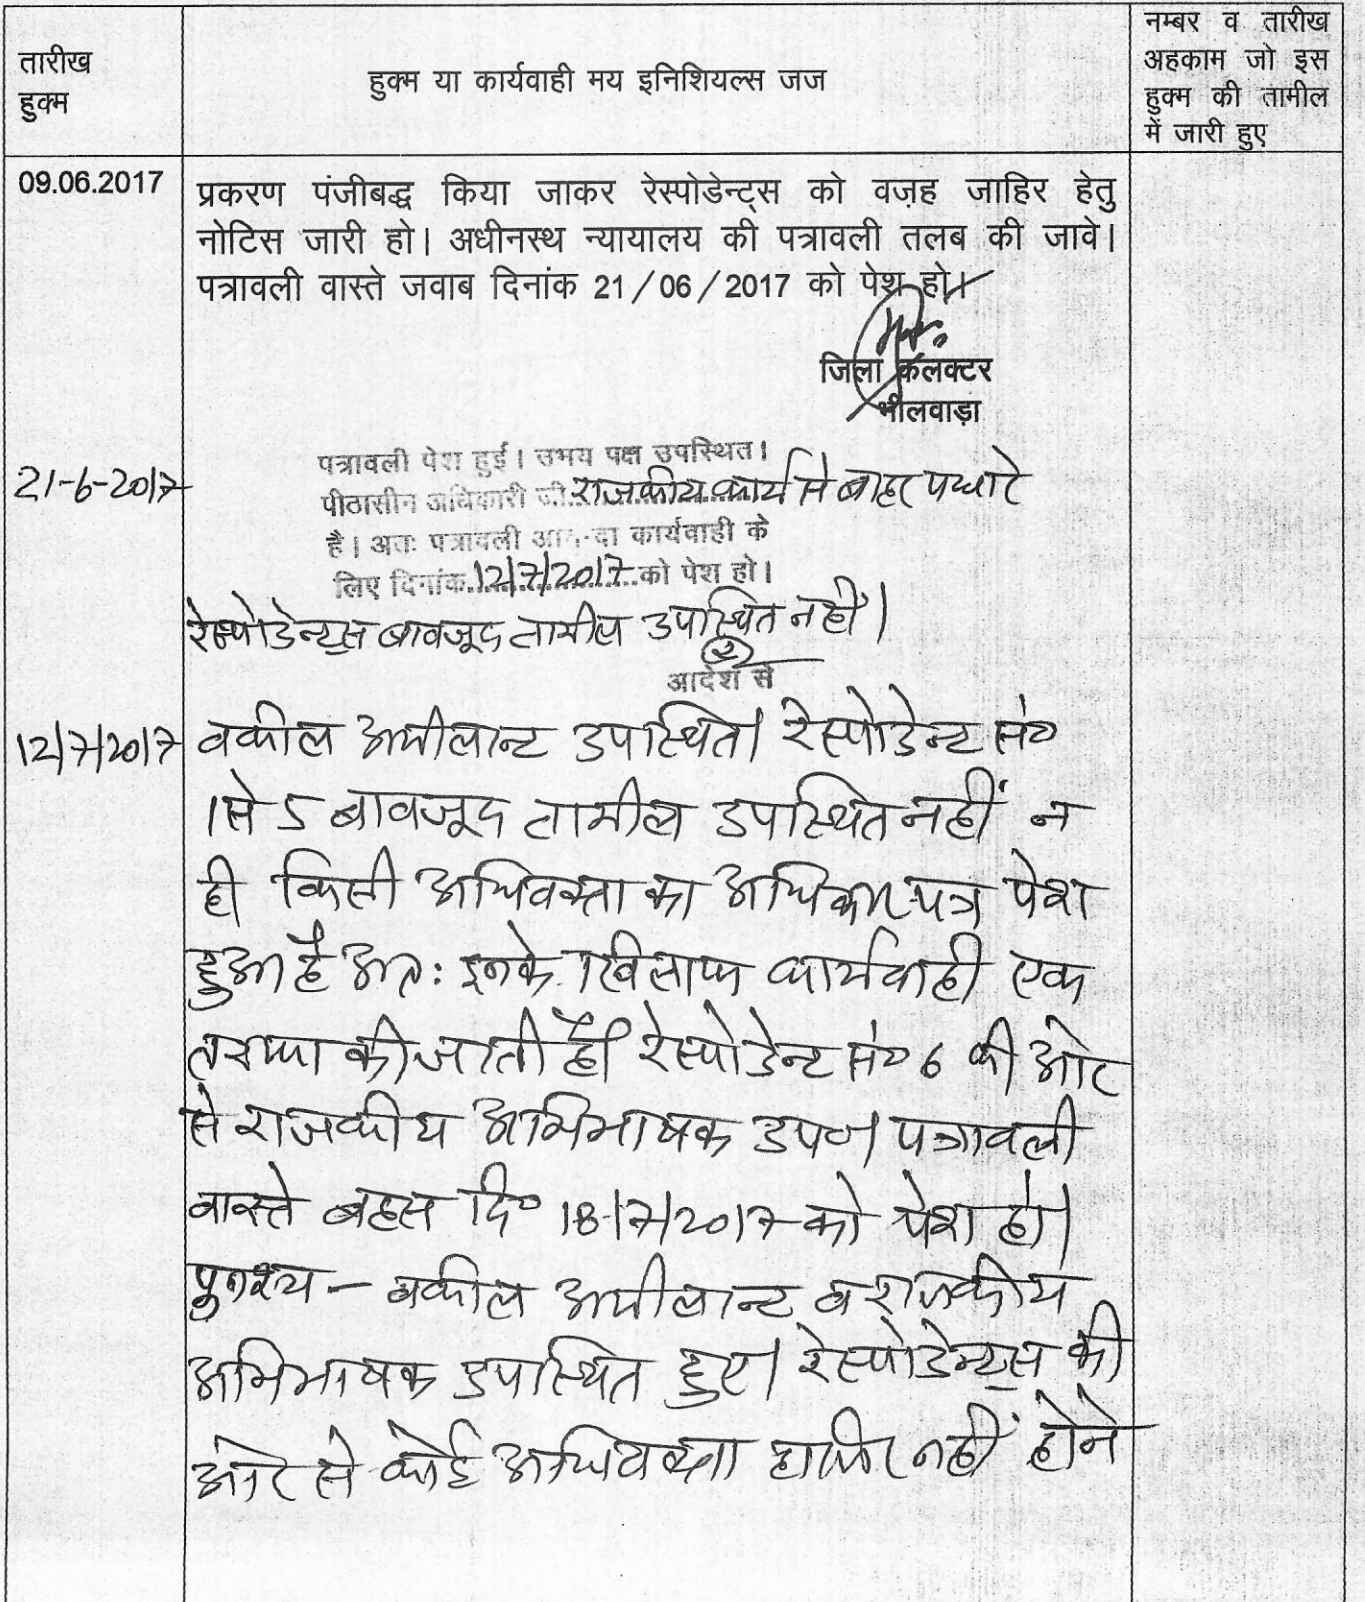 तारीख
हुक्म
हुक्म या कार्यवाही मय इनिशियल्स जज
नम्बर व तारीख
अहकाम जो इस
हुक्म की तामील
में जारी हुए
09.06.2017
प्रकरण पंजीबद्ध किया जाकर रेस्पोडेन्ट्स को वज़ह जाहिर हेतु
नोटिस जारी हो। अधीनस्थ न्यायालय की पत्रावली तलब की जावे।
पत्रावली वास्ते जवाब दिनांक 21/06/2017 को पेश हो।
जिला कलक्टर
भीलवाड़ा
21-6-2017
पत्रावली पेश हुई। उभय पक्ष उपस्थित।
पीठासीन अधिकारी जी राजकीय कार्य से बाहर पधारे
है। अतः पत्रावली आइन्दा कार्यवाही के
लिए दिनांक 12/7/2017 को पेश हो।
रेस्पोडेन्ट्स बावजूद तामील उपस्थित नहीं।
आदेश से
12/7/2017
वकील अपीलान्ट उपस्थित। रेस्पोडेन्ट सं०
1 से 5 बावजूद तामील उपस्थित नहीं न
ही किसी अधिवक्ता का अधिकार पत्र पेश
हुआ है अतः इनके खिलाफ कार्यवाही एक
तरफा की जाती है। रेस्पोडेन्ट सं० 6 की ओर
से राजकीय अभिभाषक उप०। पत्रावली
वास्ते बहस दि० 18/7/2017 को पेश हो।
पुनश्च - वकील अपीलान्ट व राजकीय
अभिभाषक उपस्थित हुए। रेस्पोडेन्ट्स की
ओर से कोई अधिवक्ता हाजिर नहीं होने